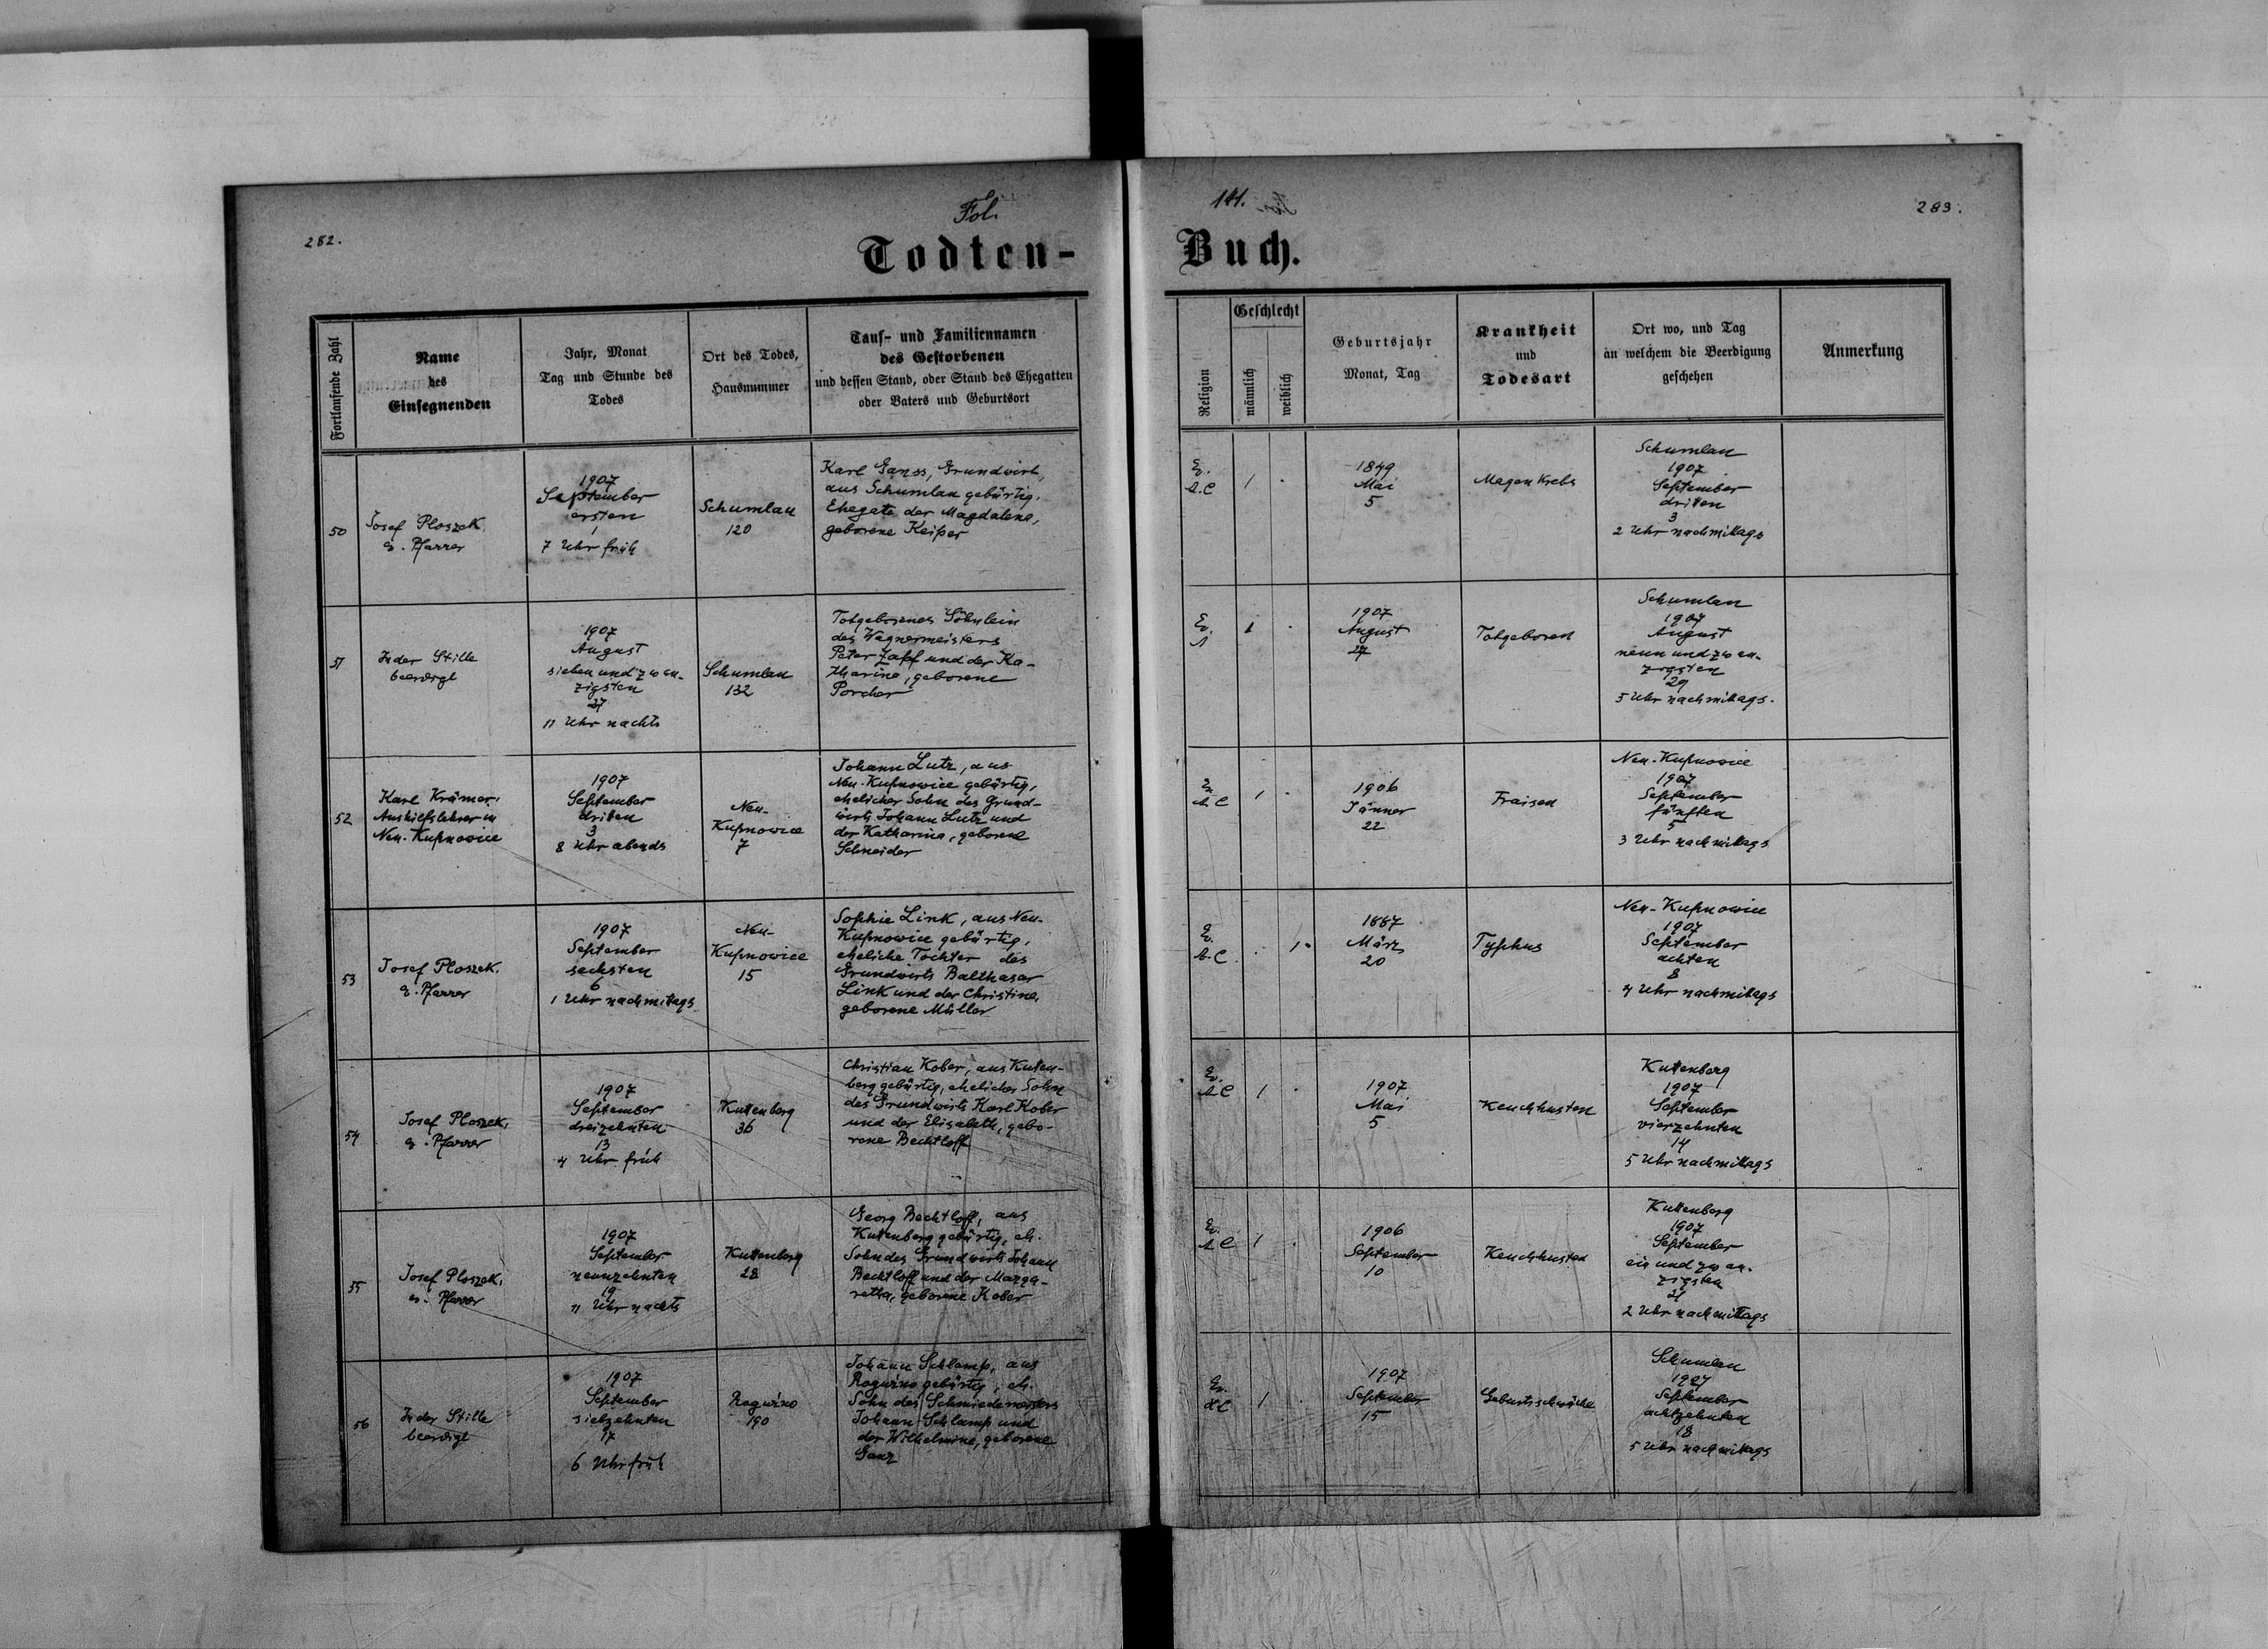 282.
Fol.
141.
283.
Todten-
Buch.
Fortlaufende Zahl
Name
des
Einsegnenden
Jahr, Monat
Tag und Stunde des
Todes
Ort des Todes,
Hausnummer
Tauf- und Familiennamen
des Gestorbenen
und dessen Stand, oder Stand des Ehegatten
oder Vaters und Geburtsort
Religion
Geschlecht
männlich
weiblich
Geburtsjahr
Monat, Tag
Krankheit
und
Todesart
Ort wo, und Tag
an welchem die Beerdigung
geschehen
Anmerkung
50
Josef Ploszek,
ev. Pfarrer
1907
September
ersten
1
7 Uhr früh
Schumlau
120
Karl Ganss, Grundwirt,
aus Schumlau gebürtig.
Ehegate der Magdalena,
geborene Keiper
Ev.
A.C
1
1849
Mai
5
Magen Krebs
Schumlau
1907
September
driten
3
2 Uhr nachmittags
51
In der Stille
beerdigt
1907
August
sieben und zwan-
zigsten
27
11 Uhr nachts
Schumlau
132
Totgeborenes Söhnlein
des Wagnermeisters
Peter Zapf und der Ka-
tharina, geborene
Porcher
Ev.
A
1
1907
August
27
Totgeboren
Schumlau
1907
August
neun und zwan-
zigsten
29
5 Uhr nachmittags.
52
Karl Krämer,
Aushilfslehrer in
Neu-Kupnowice
1907
September
driten
3
8 Uhr abends
Neu-
Kupnowice
7
Johann Lutz, aus
Neu-Kupnowice gebürtig,
ehelicher Sohn des Grund-
wirts Johann Lutz und
der Katharina, geborene
Schneider
Ev.
A.C
1
1906
Jänner
22
Fraisen
Neu-Kupnowice
1907
September
fünften
5
3 Uhr nachmittags
53
Josef Ploszek,
ev. Pfarrer
1907
September
sechsten
6
1 Uhr nachmitags
Neu-
Kupnowice
15
Sophie Link, aus Neu-
Kupnowice gebürtig,
eheliche Tochter des
Grundwirts Balthasar
Link und der Christina,
geborene Müller
Ev.
A.C.
1
1887
März
20
Typhus
Neu-Kupnowice
1907
September
achten
8
4 Uhr nachmittags
54
Josef Ploszek,
ev. Pfarrer
1907
September
dreizehnten
13
4 Uhr früh
Kuttenberg
36
Christian Kober, aus Kuten-
berg gebürtig, ehelicher Sohn
des Grundwirts Karl Kober
und der Elisabeth, gebo-
rene Bechtloff
Ev.
A.C
1
1907
Mai
5
Keuchhusten
Kuttenberg
1907
September
vierzehnten
14
5 Uhr nachmittags
55
Josef Ploszek,
ev. Pfarrer
1907
September
neunzehnten
19
11 Uhr nachts
Kuttenberg
28
Georg Bechtloff, aus
Kuttenberg gebürtig, eh.
Sohn des Grundwirts Johann
Bechtloff und der Marga-
retha, geborene Kober
Ev.
A.C
1
1906
September
10
Keuchhusten
Kuttenberg
1907
September
ein und zwan-
zigsten
21
2 Uhr nachmittags
56
In der Stille
beerdigt
1907
September
siebzehnten
17
6 Uhr früh
Roguźno
190
Johann Schlamp, aus
Roguźno gebürtig, eh.
Sohn des Schmiedemeisters
Johann Schlamp und
der Wilhelmine, geborene
Ganz
Ev.
A.C
1
1907
September
15
Geburtsschwäche
Schumlau
1907
September
achtzehnten
18
5 Uhr nachmittags